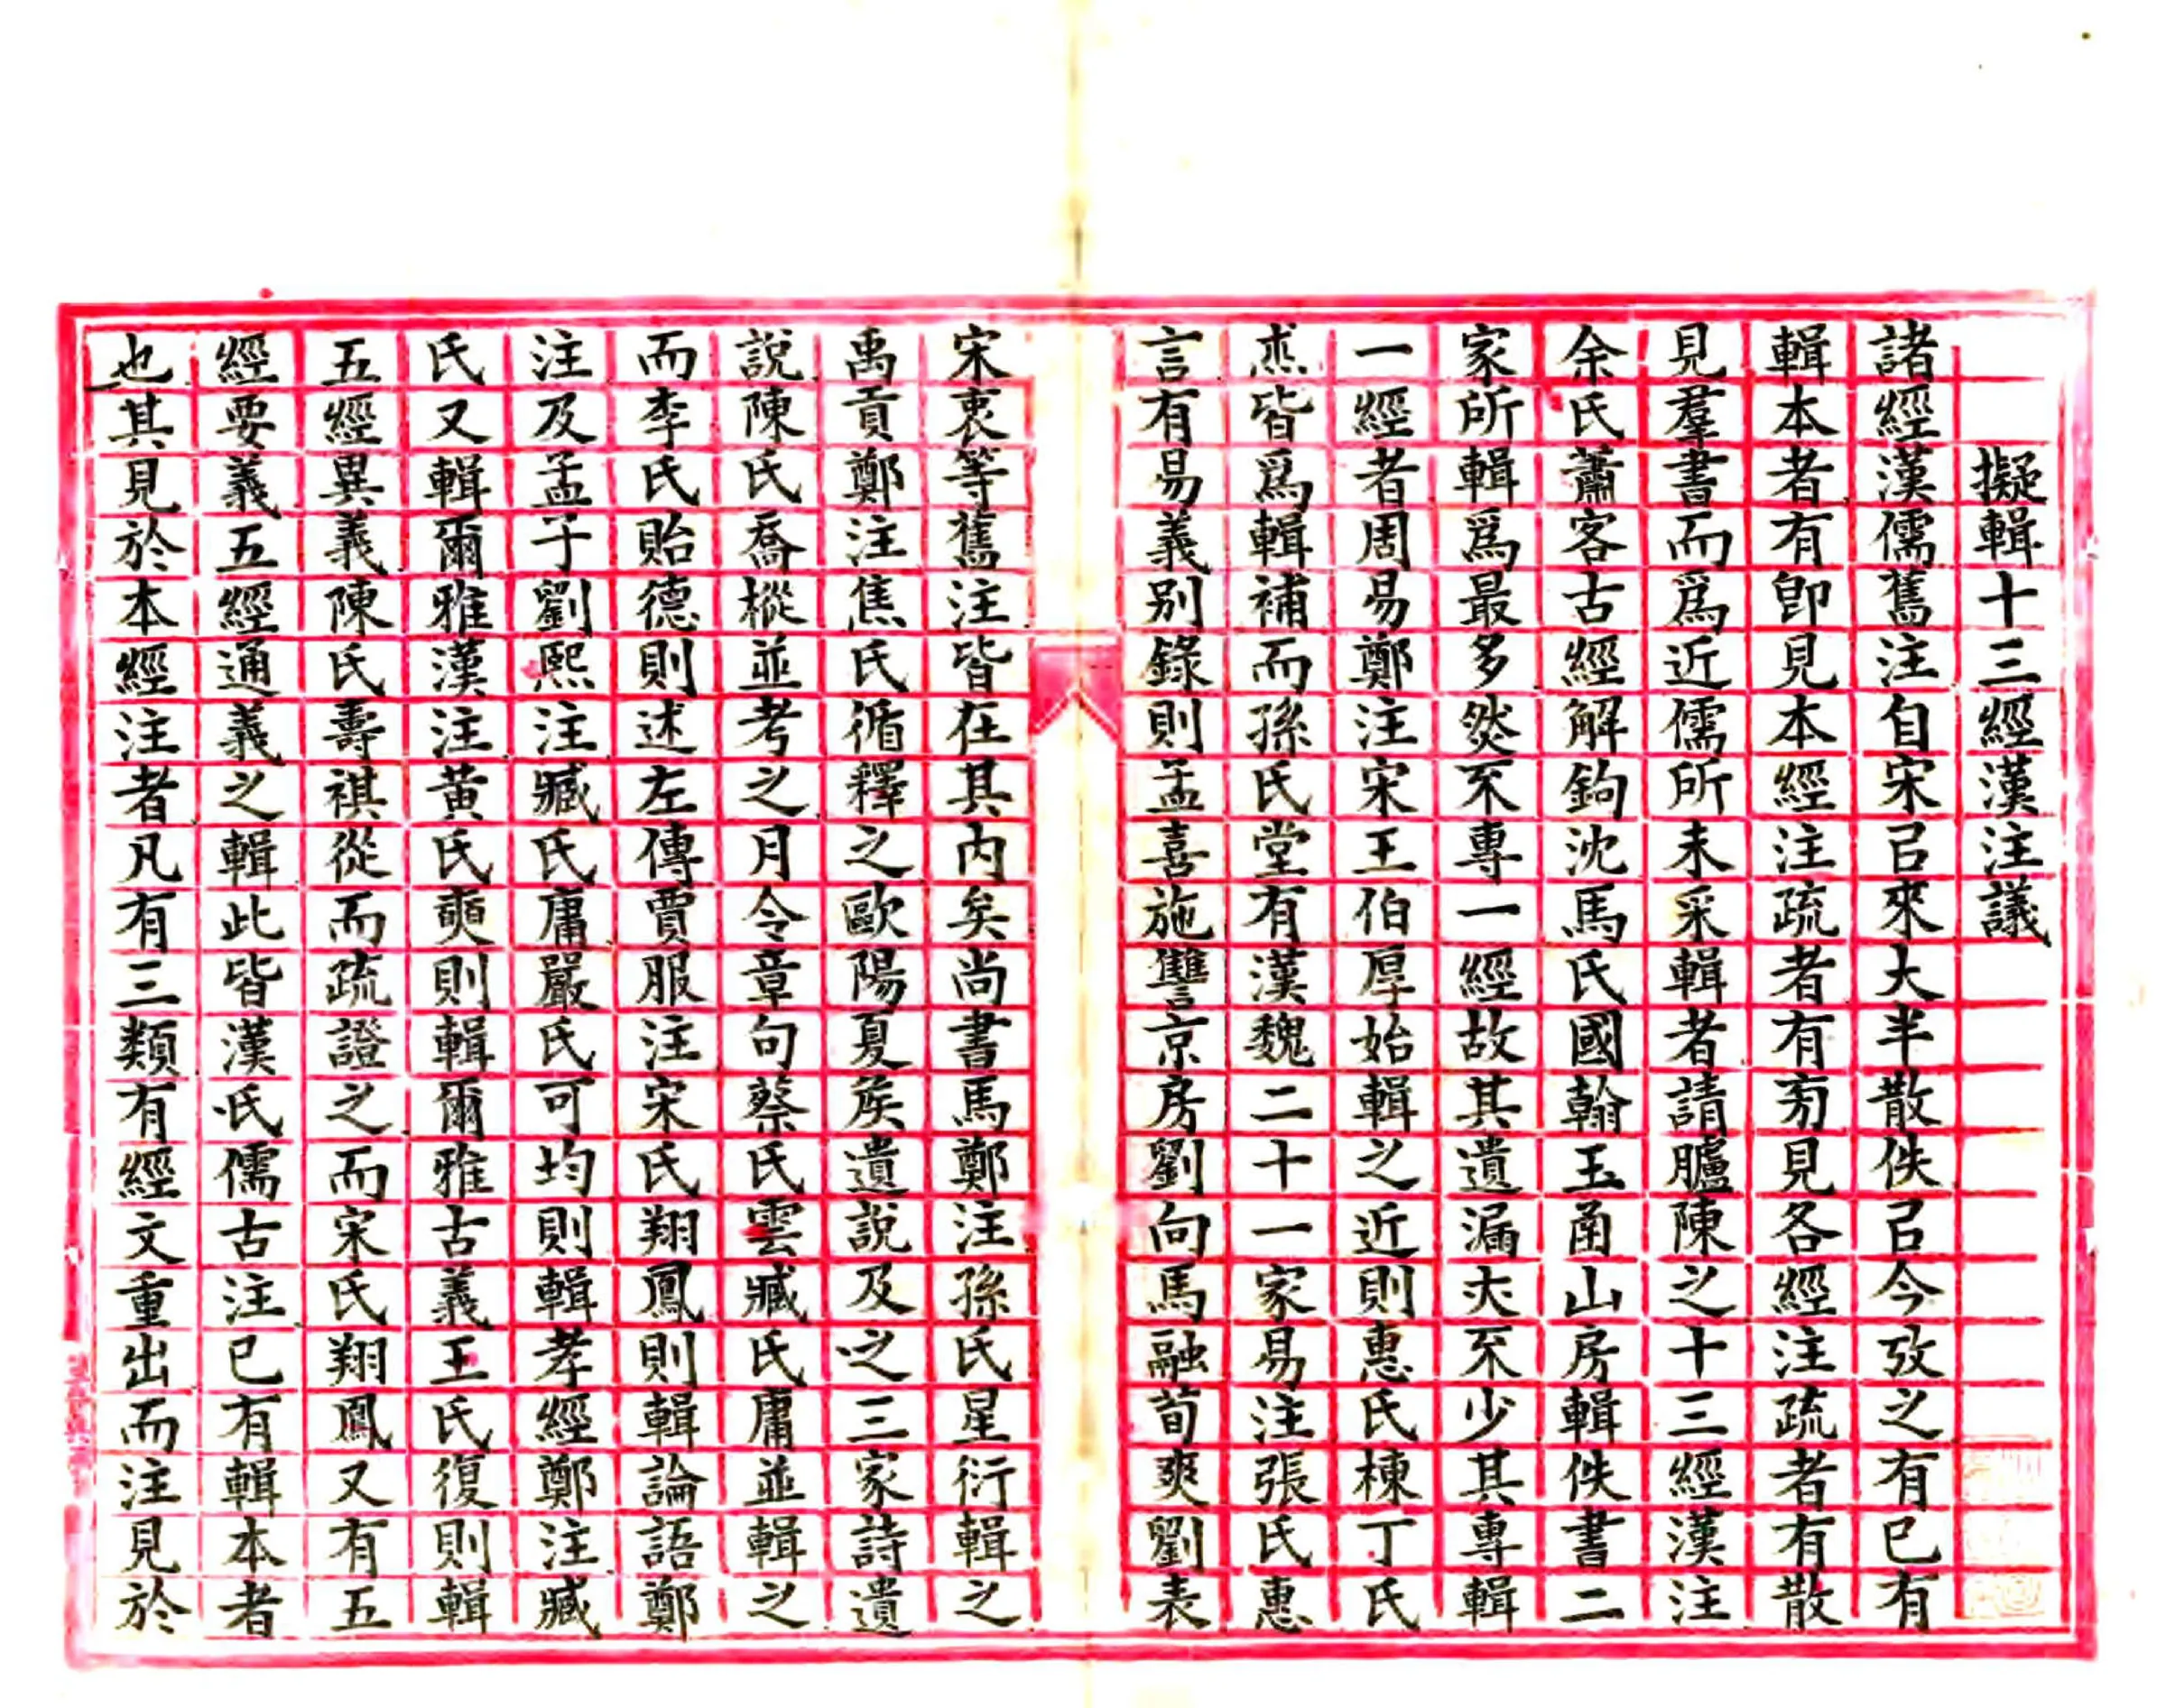 擬輯十三經漢注議
諸經漢儒舊注自宋㠯來大半散佚㠯今攷之有已有
輯本者有卽見本經注疏者有㫄見各經注疏者有散
見羣書而爲近儒所未采輯者請臚陳之十三經漢注
余氏蕭客古經解鉤沈馬氏國翰玉函山房輯佚書二
家所輯爲最多然不專一經故其遺漏夫不少其專輯
一經者周易鄭注宋王伯厚始輯之近則惠氏棟丁氏
杰皆爲輯補而孫氏堂有漢魏二十一家易注張氏惠
言有易義別錄則孟喜施讐京房劉向馬融荀爽劉表
宋衷等舊注皆在其内矣尚書馬鄭注孫氏星衍輯之
禹貢鄭注焦氏循釋之歐陽夏矦遺說及之三家詩遺
說陳氏喬樅並考之月令章句蔡氏雲臧氏庸並輯之
而李氏貽德則述左傳賈服注宋氏翔鳳則輯論語鄭
注及孟子劉熙注臧氏庸嚴氏可均則輯孝經鄭注臧
氏又輯爾雅漢注黃氏奭則輯爾雅古義王氏復則輯
五經異義陳氏壽祺從而疏證之而宋氏翔鳳又有五
經要義五經通義之輯此皆漢氏儒古注已有輯本者
也其見於本經注者凡有三類有經文重出而注見於